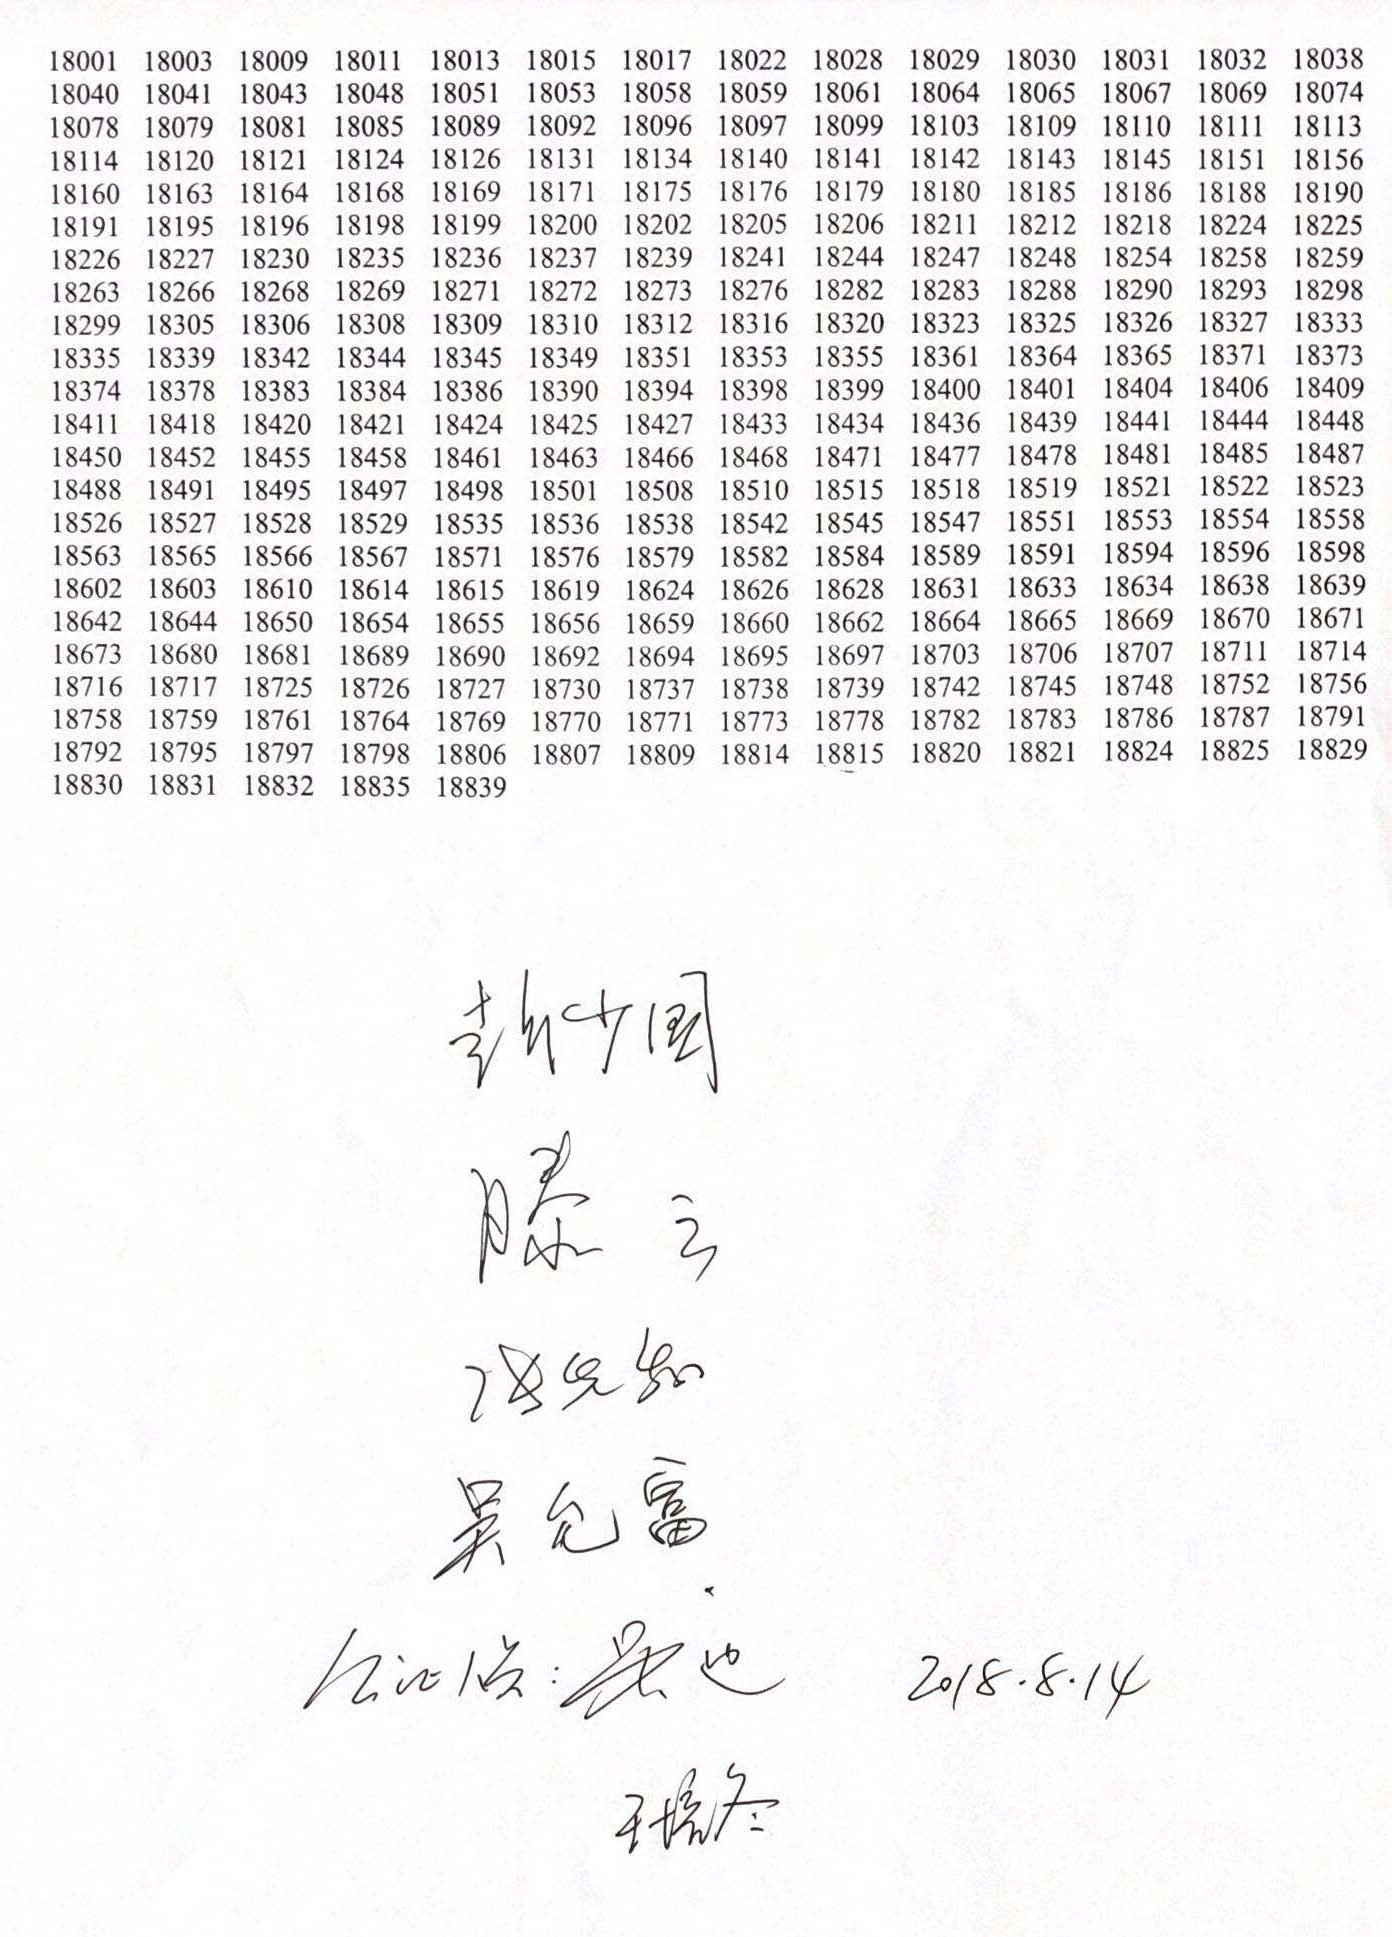 18001 18003 18009 18011 18013 18015 18017 18022 18028 18029 18030 18031 18032 18038
18040 18041 18043 18048 18051 18053 18058 18059 18061 18064 18065 18067 18069 18074
18078 18079 18081 18085 18089 18092 18096 18097 18099 18103 18109 18110 18111 18113
18114 18120 18121 18124 18126 18131 18134 18140 18141 18142 18143 18145 18151 18156
18160 18163 18164 18168 18169 18171 18175 18176 18179 18180 18185 18186 18188 18190
18191 18195 18196 18198 18199 18200 18202 18205 18206 18211 18212 18218 18224 18225
18226 18227 18230 18235 18236 18237 18239 18241 18244 18247 18248 18254 18258 18259
18263 18266 18268 18269 18271 18272 18273 18276 18282 18283 18288 18290 18293 18298
18299 18305 18306 18308 18309 18310 18312 18316 18320 18323 18325 18326 18327 18333
18335 18339 18342 18344 18345 18349 18351 18353 18355 18361 18364 18365 18371 18373
18374 18378 18383 18384 18386 18390 18394 18398 18399 18400 18401 18404 18406 18409
18411 18418 18420 18421 18424 18425 18427 18433 18434 18436 18439 18441 18444 18448
18450 18452 18455 18458 18461 18463 18466 18468 18471 18477 18478 18481 18485 18487
18488 18491 18495 18497 18498 18501 18508 18510 18515 18518 18519 18521 18522 18523
18526 18527 18528 18529 18535 18536 18538 18542 18545 18547 18551 18553 18554 18558
18563 18565 18566 18567 18571 18576 18579 18582 18584 18589 18591 18594 18596 18598
18602 18603 18610 18614 18615 18619 18624 18626 18628 18631 18633 18634 18638 18639
18642 18644 18650 18654 18655 18656 18659 18660 18662 18664 18665 18669 18670 18671
18673 18680 18681 18689 18690 18692 18694 18695 18697 18703 18706 18707 18711 18714
18716 18717 18725 18726 18727 18730 18737 18738 18739 18742 18745 18748 18752 18756
18758 18759 18761 18764 18769 18770 18771 18773 18778 18782 18783 18786 18787 18791
18792 18795 18797 18798 18806 18807 18809 18814 18815 18820 18821 18824 18825 18829
18830 18831 18832 18835 18839
彭少国
滕云
吴允富
公证员: 2018.8.14
王培冬